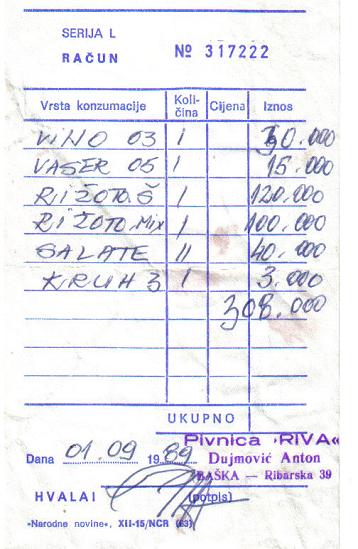 SERIJA L
RAČUN № 317222
Vrsta konzumacije Koli-čina Cijena Iznos
VINO 03 1 30.000
VASER 05 1 15.000
RIŽOTO.Š 1 120.000
RIŽOTO.Mix 1 100.000
SALATE 11 40.000
KRUH 3 1 3.000
308.000
UKUPNO
Pivnica ›RIVA«
Dana 01.09 1989 Dujmović Anton
BAŠKA — Ribarska 39
HVALAI (potpis)
»Narodne novine«, XII-15/NCR (83)